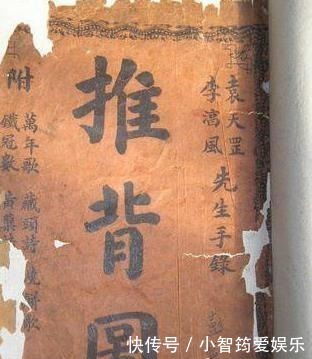 袁天罡
李湻風
先生手錄
推背圖
附
萬年歌 藏頭詩 燒餅歌
鐵冠數
快传号 / 小智筠爱娱乐